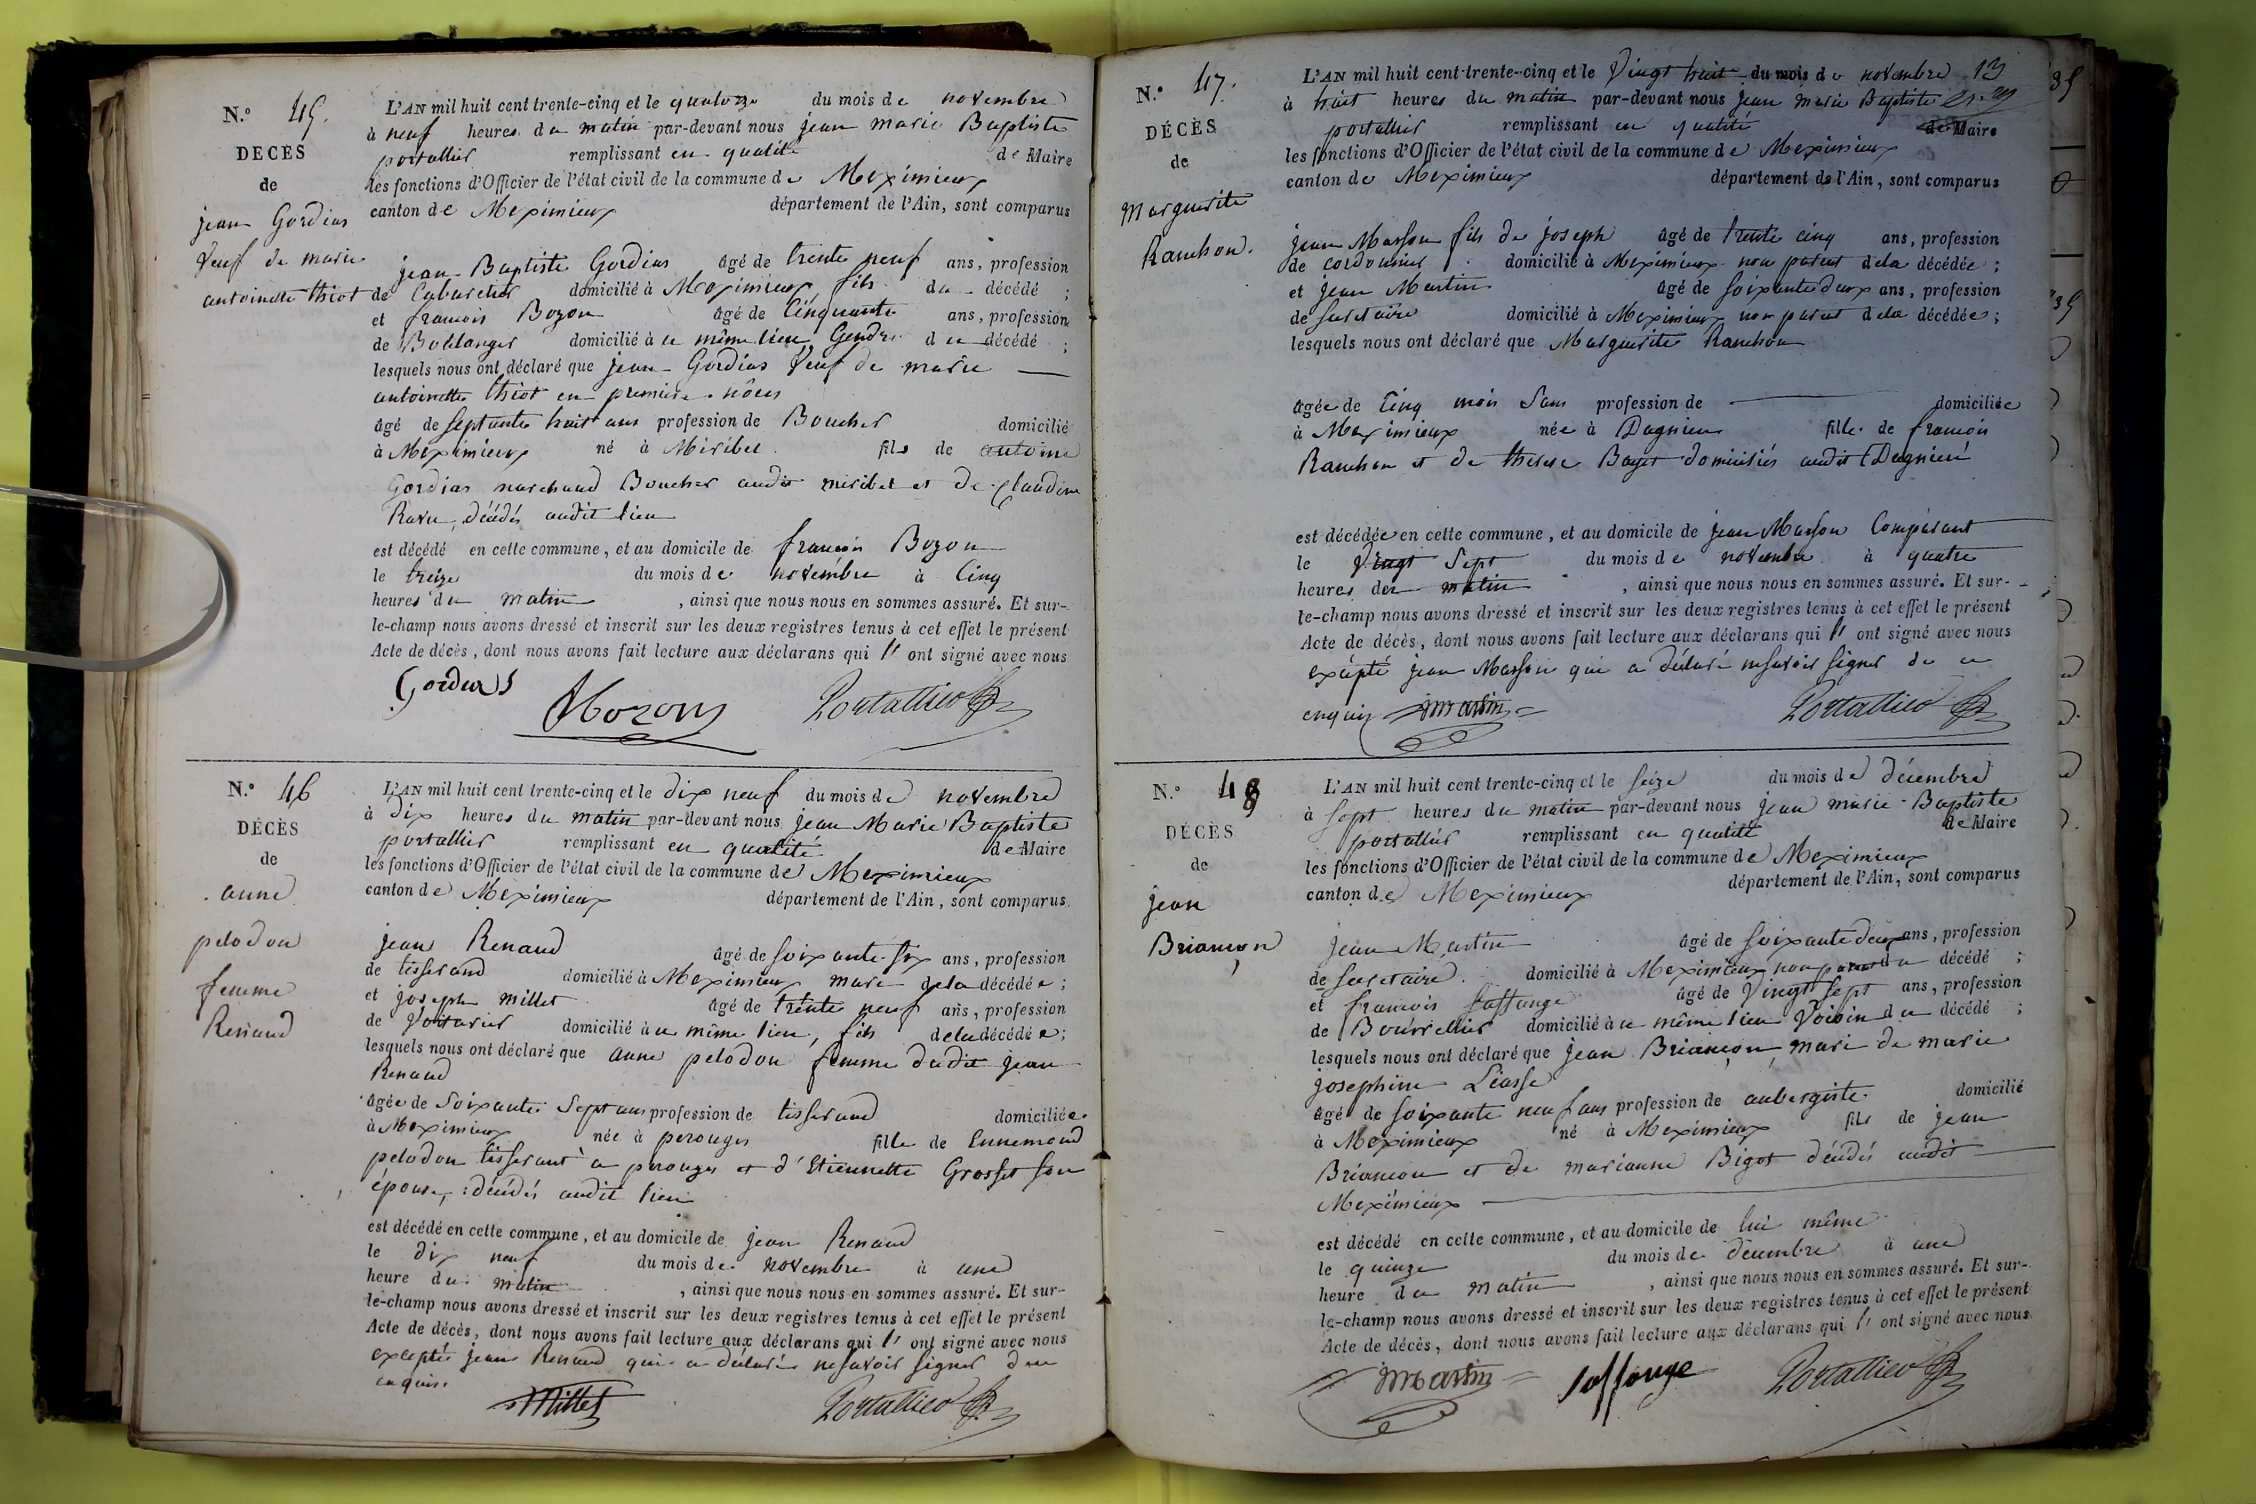 N.° 45.
DÉCÈS
de
jean Gordias
veuf de marie
antoinette thiot
L'AN mil huit cent trente-cinq et le quatorze du mois de novembre
à neuf heures du matin par-devant nous jean marie Baptiste
portallier remplissant en qualité de Maire
les fonctions d'Officier de l'état civil de la commune de Meximieux
canton de Meximieux département de l'Ain, sont comparus
jean Baptiste Gordias âgé de trente neuf ans, profession
de Cabaretier domicilié à Meximieux fils du décédé ;
et francois Bozon âgé de Cinquante ans, profession
de Boulanger domicilié à ce même lieu, Gendre du décédé ;
lesquels nous ont déclaré que jean Gordias veuf de marie
antoinette thiot en premiere nôces
âgé de septante huit ans profession de Boucher domicilié
à Meximieux né à Miribel fils de antoine
Gordias marchand Boucher audit miribel et de Claudine
Ravu, décédés audit lieu
est décédé en cette commune, et au domicile de francois Bozon
le treize du mois de novembre à Cinq
heures du matin , ainsi que nous nous en sommes assuré. Et sur-
le-champ nous avons dressé et inscrit sur les deux registres tenus à cet effet le présent
Acte de décès, dont nous avons fait lecture aux déclarans qui l' ont signé avec nous
Gordias Bozon Portallier
N.° 46
DÉCÈS
de
anne
pelodon
femme
Renaud
L'AN mil huit cent trente-cinq et le dix neuf du mois de novembre
à dix heures du matin par-devant nous jean Marie Baptiste
portallier remplissant en qualité de Maire
les fonctions d'Officier de l'état civil de la commune de Meximieux
canton de Meximieux département de l'Ain, sont comparus
jean Renaud âgé de soixante six ans, profession
de tisserand domicilié à Meximieux mari de la décédée ;
et joseph millet âgé de trente neuf ans, profession
de Voiturier domicilié à ce même lieu, fils de la décédée ;
lesquels nous ont déclaré que anne pelodon femme dudit jean
Renaud
âgée de soixante sept ans profession de tisserand domiciliée
à Meximieux née à perouges fille de Ennemond
pelodon tisserant à perouges et d'Etiennette Grosset son
épouse, décédés audit lieu
est décédé en cette commune, et au domicile de jean Renaud
le dix neuf du mois de novembre à une
heure du matin , ainsi que nous nous en sommes assuré. Et sur-
le-champ nous avons dressé et inscrit sur les deux registres tenus à cet effet le présent
Acte de décès, dont nous avons fait lecture aux déclarans qui l' ont signé avec nous
excepté jean Renaud qui a déclaré ne savoir signer de ce
enquis.
Millet Portallier
N.° 47.
DÉCÈS
de
Marguerite
Ranchon.
13
L'AN mil huit cent trente-cinq et le Vingt huit du mois de novembre
à huit heures du matin par-devant nous jean marie Baptiste
portallier remplissant en qualité de Maire
les fonctions d'Officier de l'état civil de la commune de Meximieux
canton de Meximieux département de l'Ain, sont comparus
jean Masson fils de joseph âgé de trente cinq ans, profession
de cordonnier domicilié à Meximieux non parent de la décédée ;
et jean Martin âgé de soixante deux ans, profession
de secretaire domicilié à Meximieux non parent de la décédée ;
lesquels nous ont déclaré que Marguerite Ranchon
âgée de Cinq mois Sans profession de domiciliée
à Meximieux née à Dagnieux fille de francois
Ranchon et de therese Boyet domiciliés audit Dagnieu
est décédée en cette commune, et au domicile de jean Masson Comparant
le Vingt Sept du mois de novembre à quatre
heures du matin , ainsi que nous nous en sommes assuré. Et sur-
le-champ nous avons dressé et inscrit sur les deux registres tenus à cet effet le présent
Acte de décès, dont nous avons fait lecture aux déclarans qui l' ont signé avec nous
excépté jean Masson qui a déclaré ne savoir signer de ce
enquis Martin Portallier
N.° 48
DÉCÈS
de
jean
Briançon
L'AN mil huit cent trente-cinq et le seize du mois de décembre
à sept heures du matin par-devant nous jean marie Baptiste
portallier remplissant en qualité de Maire
les fonctions d'Officier de l'état civil de la commune de Meximieux
canton de Meximieux département de l'Ain, sont comparus
jean Martin âgé de soixante deux ans, profession
de secretaire domicilié à Meximieux non parent du décédé ;
et francois Laffonge âgé de Vingt sept ans, profession
de Bourrelier domicilié à ce même lieu Voisin du décédé ;
lesquels nous ont déclaré que jean Briançon, mari de marie
josephine Liasse
âgé de soixante neuf ans profession de aubergiste domicilié
à Meximieux né à Meximieux fils de jean
Briancon et de marianne Bigot décédés audit
Meximieux
est décédé en cette commune, et au domicile de lui même
le quinze du mois de décembre à une
heure du matin , ainsi que nous nous en sommes assuré. Et sur-
le-champ nous avons dressé et inscrit sur les deux registres tenus à cet effet le présent
Acte de décès, dont nous avons fait lecture aux déclarans qui l' ont signé avec nous
Martin Laffonge Portallier